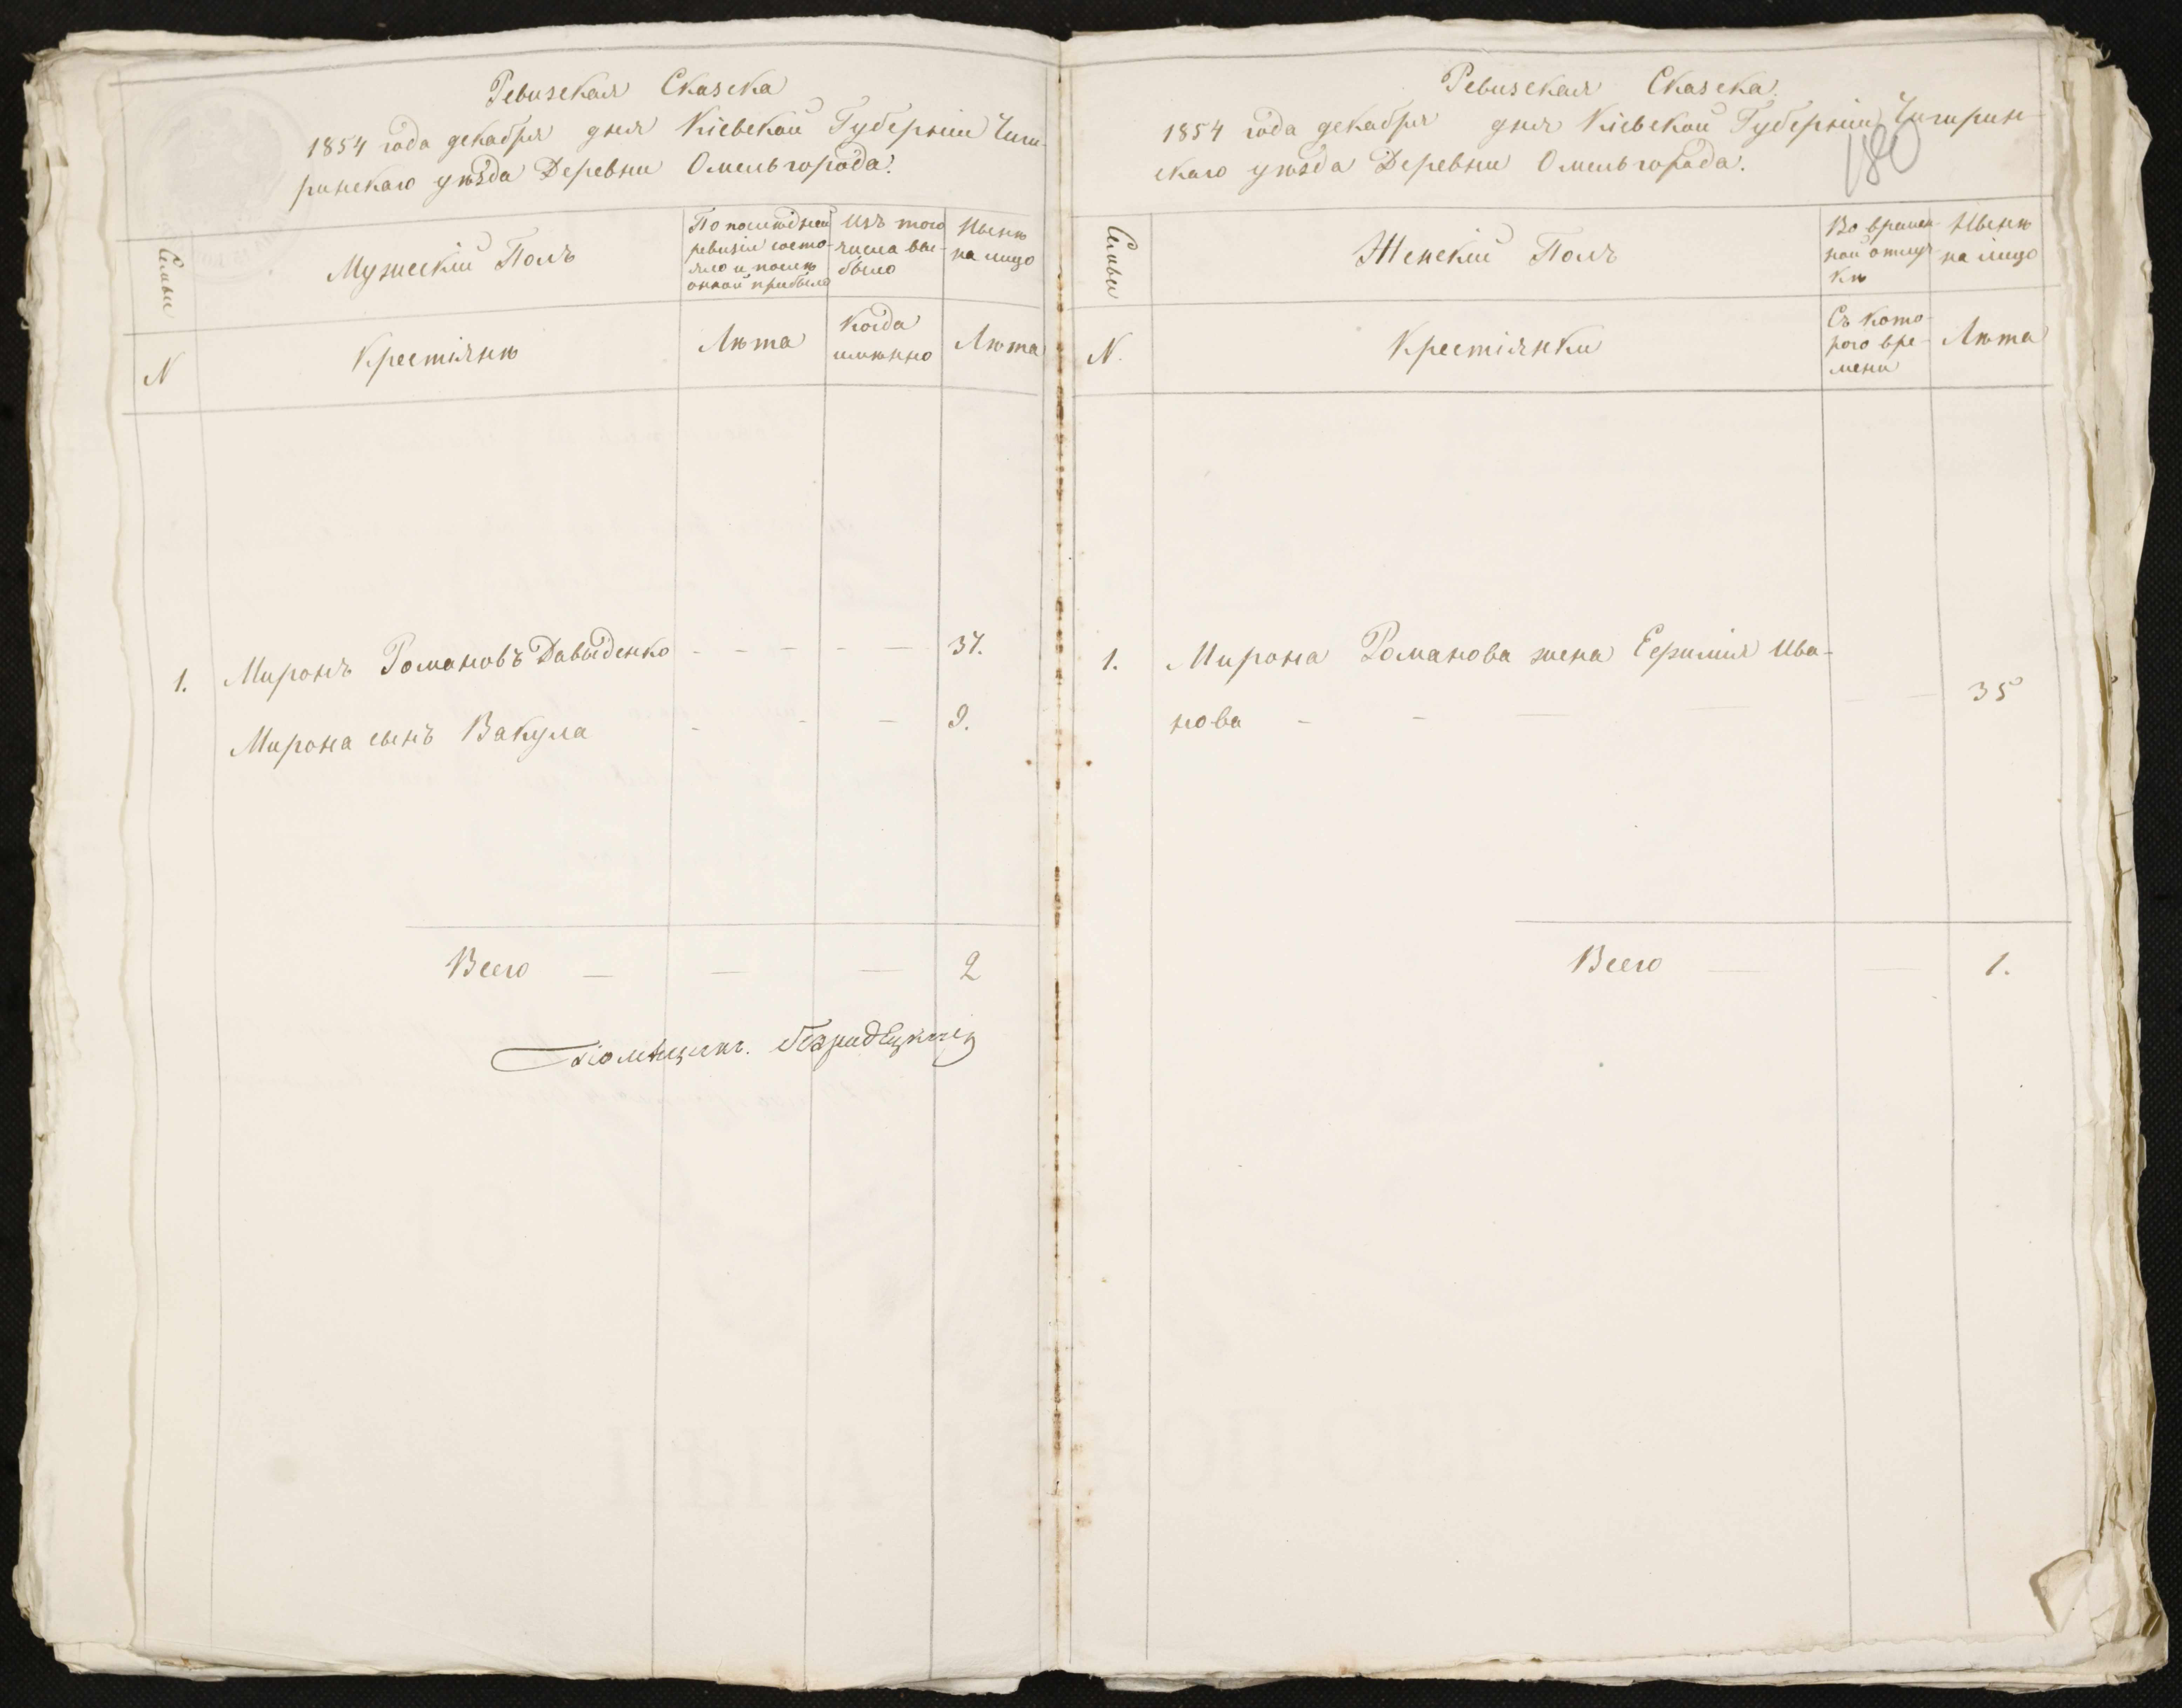 Ревизская Сказка
1854 года декабря дня Кіевской Губерніи Чиги-
ринскаго уѣзда Деревни Омельгорода.
Семьи
Мужескій Полъ
По послѣдней
ревизіи состо-
яло и послѣ
оной прибыло
Изъ того
числа вы-
было
Нынѣ
на лицо
N
Крестіянѣ
Лѣта
Когда
имѣнно
Лѣта
1. Миронъ Романовъ Давыденко - - - - - 37.
Мирона сынъ Вакула - - - 9.
Всего - - - 2
Помѣщикъ
Ревизская Сказка.
1854 года декабря дня Кіевской Губерніи Чигирин-
скаго уѣзда Деревни Омельгорода.
180
Семьи
Женскій Полъ
Во времен-
ной отлуч-
кѣ
Нынѣ
на лицо
N.
Крестіянки
Съ кото-
рого вре-
мени
Лѣта
1. Мирона Романова жена Ефимия Ива-
нова - - - - - - 35
Всего - - 1.